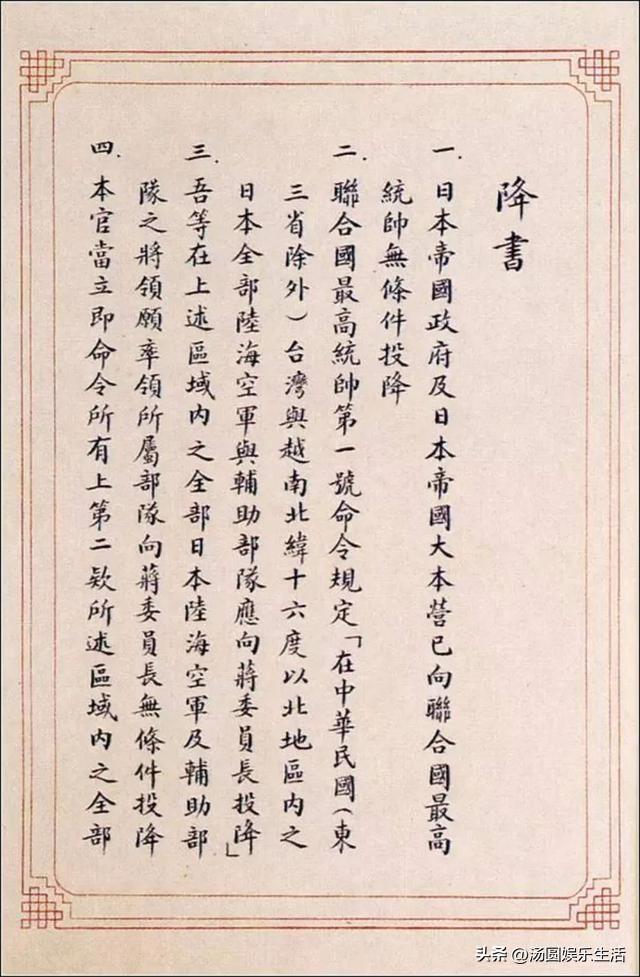 降書
一.日本帝國政府及日本帝國大本營已向聯合國最高
統帥無條件投降
二.聯合國最高統帥第一號命令規定「在中華民國(東
三省除外)台灣與越南北緯十六度以北地區內之
日本全部陸海空軍與輔助部隊應向蔣委員長投降」
三.吾等在上述區域內之全部日本陸海空軍及輔助部
隊之將領願率領所屬部隊向蔣委員長無條件投降
四.本官當立即命令所有上第二欵所述區域內之全部
头条 @汤圆娱乐生活